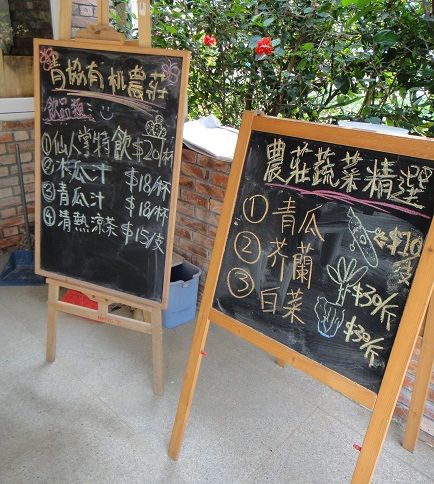 青協有機農莊
飲品類：
① 仙人掌特飲 $20/杯
② 木瓜汁 $18/杯
③ 青瓜汁 $18/杯
④ 清熱涼茶 $15/支
農莊蔬菜精選
① 青瓜 $10/斤
② 芥蘭 $30/斤
③ 白菜 $30/斤